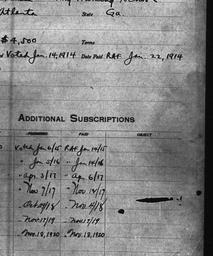 Atlanta State Ga.
$4,500 Terms
Voted Jan. 14, 1914 Date Paid R.A.F. Jan. 22, 1914
ADDITIONAL SUBSCRIPTIONS
PROMISED PAID OBJECT
Voted Jan 6/15 R.A.F. Jan 14/15
" Jan 5/16 " Jan 14/16
" Apr. 3/17 " Apr 6/17
" Nov 7/17 " Nov 14/17
Nov 4/18
" Nov 17/19 " Nov 17/19
" Nov. 18, 1920 " Nov. 18, 1920